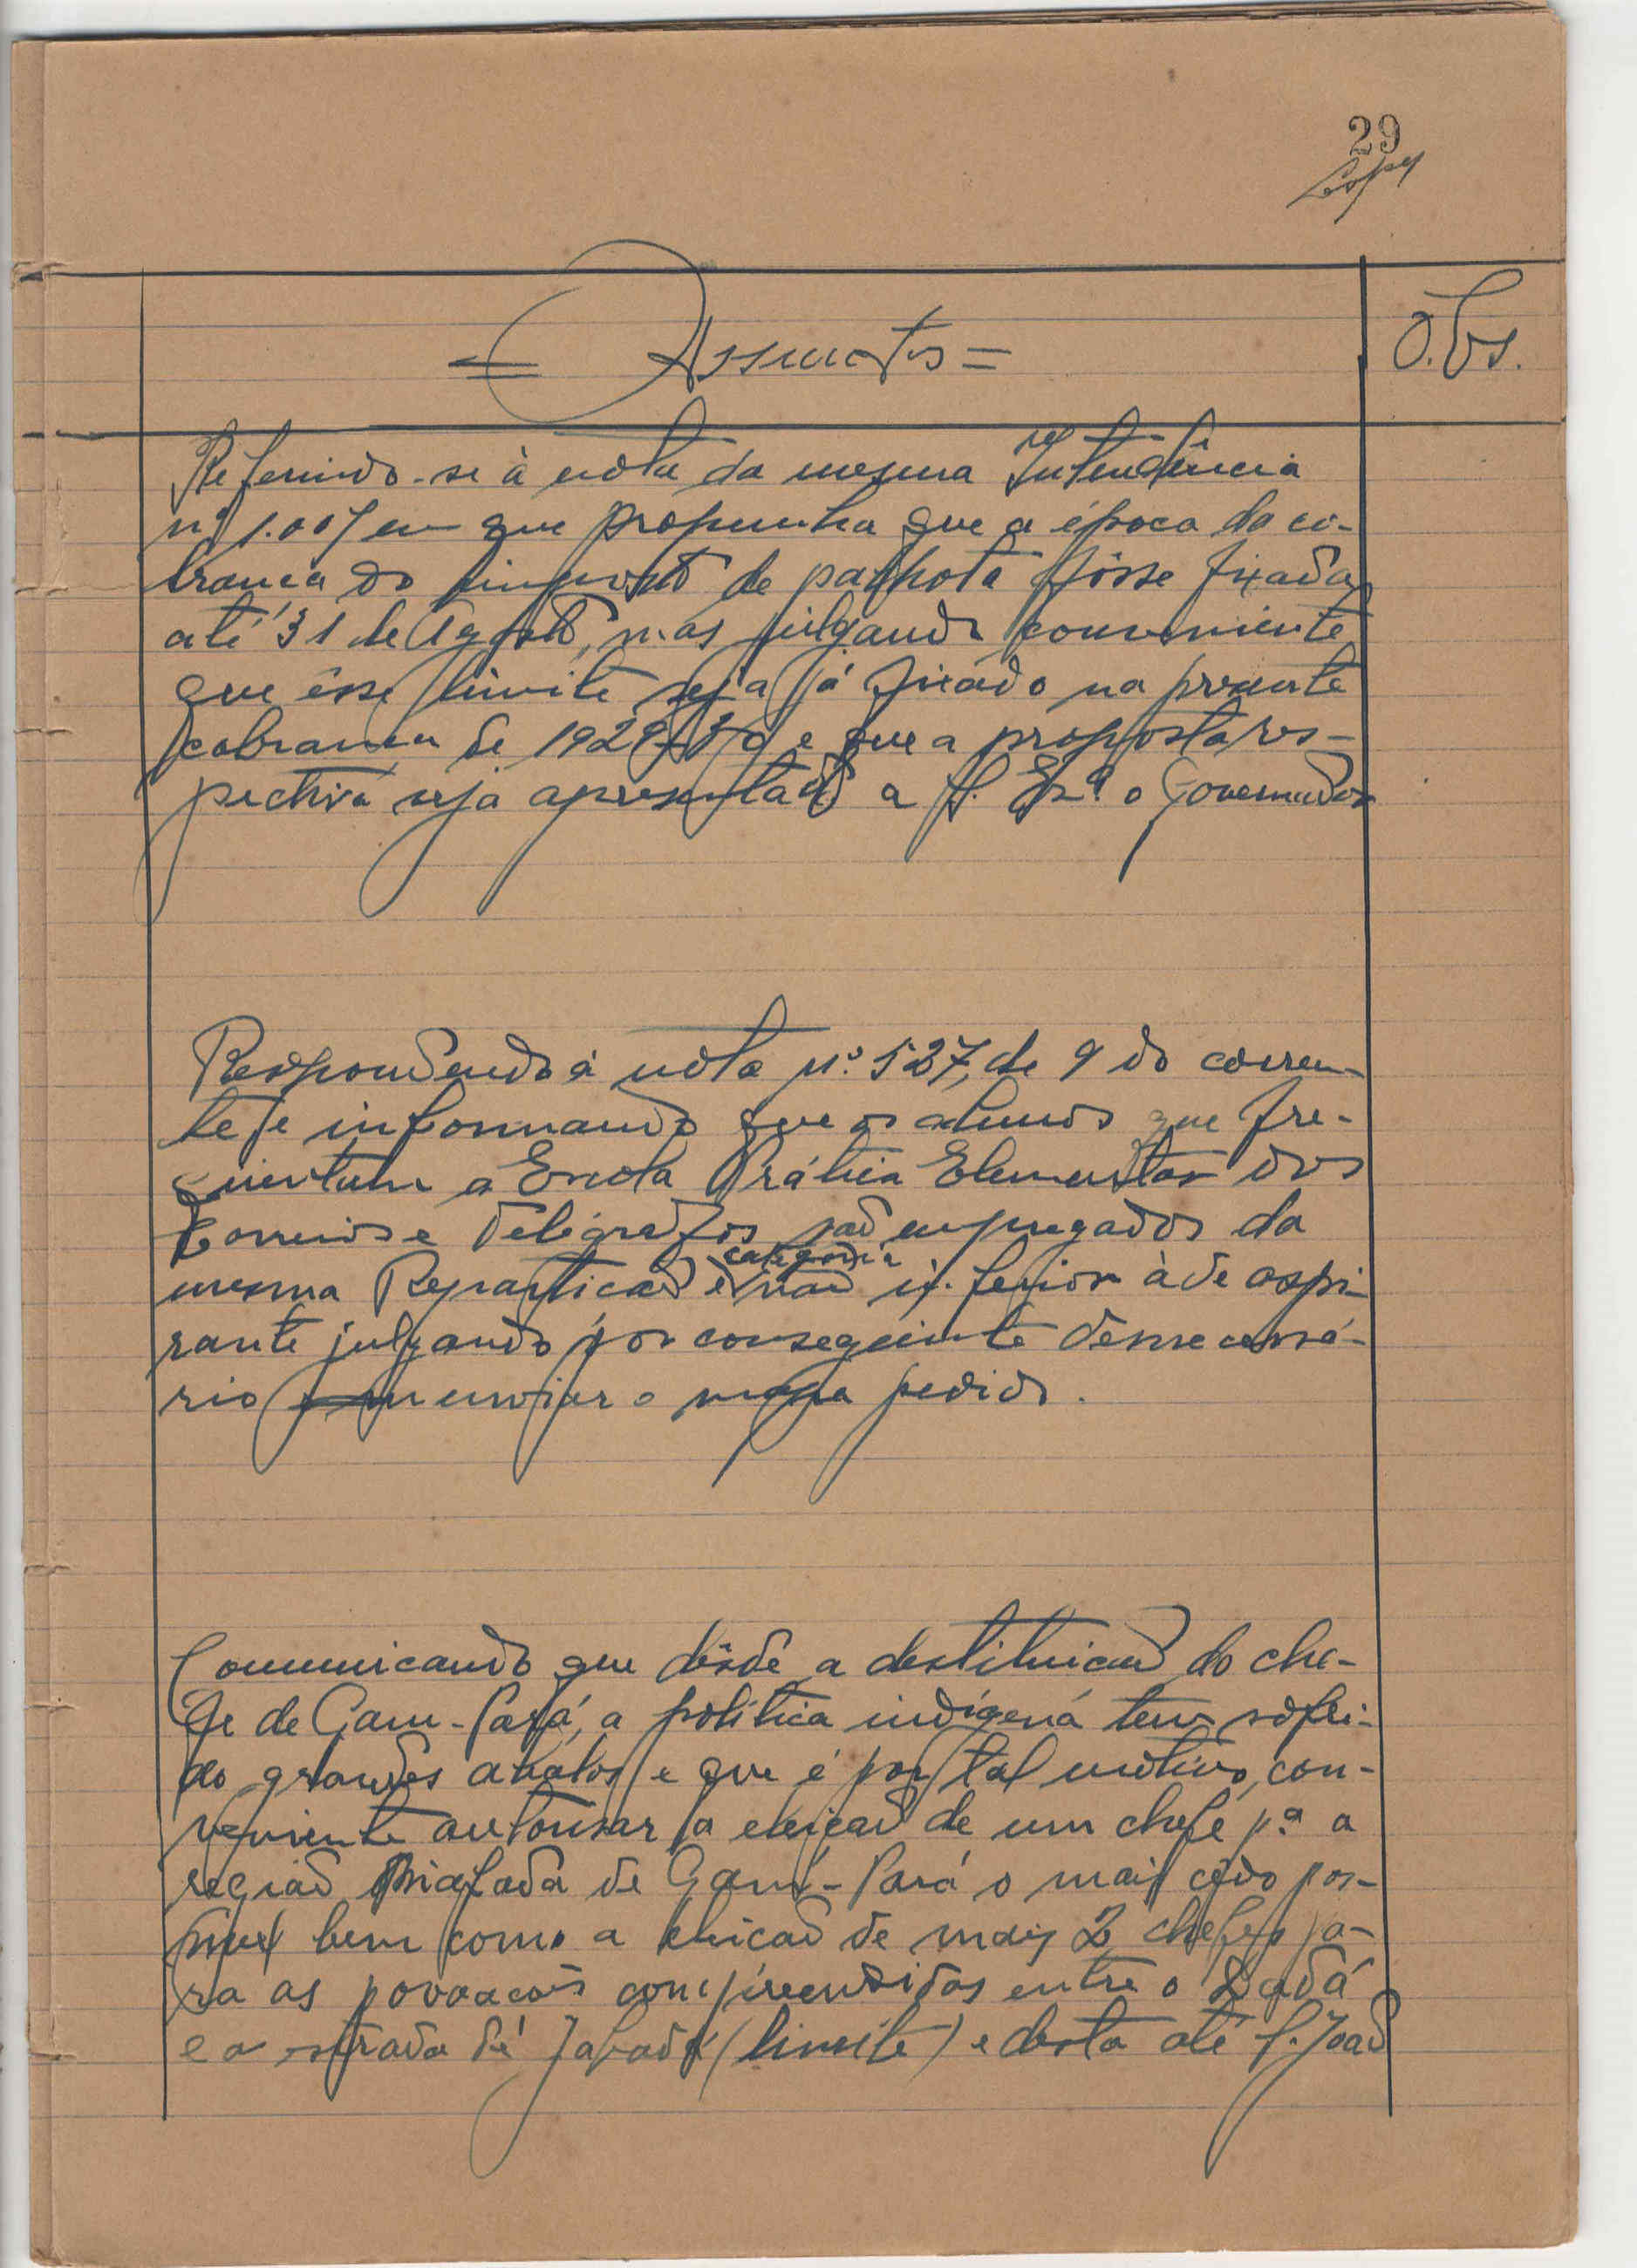 29
Lopes
= Assuntos =
Obs.
Referindo-se à nota da mesma Intendência
nº 1.007 em que propunha que a época da co-
brança do imposto de palhota fôsse fixada
até 31 de Agosto, mas julgando conveniente
que êsse limite seja já fixado na presente
cobrança de 1929-30 e que a proposta res-
pectiva seja apresentada a S. Exª o Governador
Respondendo à nota nº 527, de 9 do corren-
te e informando que os alunos que fre-
quentam a Escola Prática Elementar dos
Correios e Telégrafos são empregados da
categoria
mesma Repartição e não inferior à de aspi-
rante julgando por conseguinte desnecessá-
rio enviar o mapa pedido.
Comunicando que dêsde a destituicão do che-
fe de Gam-Pará, a política indígena tem sofri-
do grandes abalos e que é por tal motivo, con-
veniente autorisar a eleição de um chefe pª a
região Bialada de Gam-Pará o mais cêdo pos-
sivel bem como a eleicão de mais 2 chefes pa-
ra as povoacões compreendidas entre o Dadá
e a estrada de Jabadá (limite) e desta até S. João